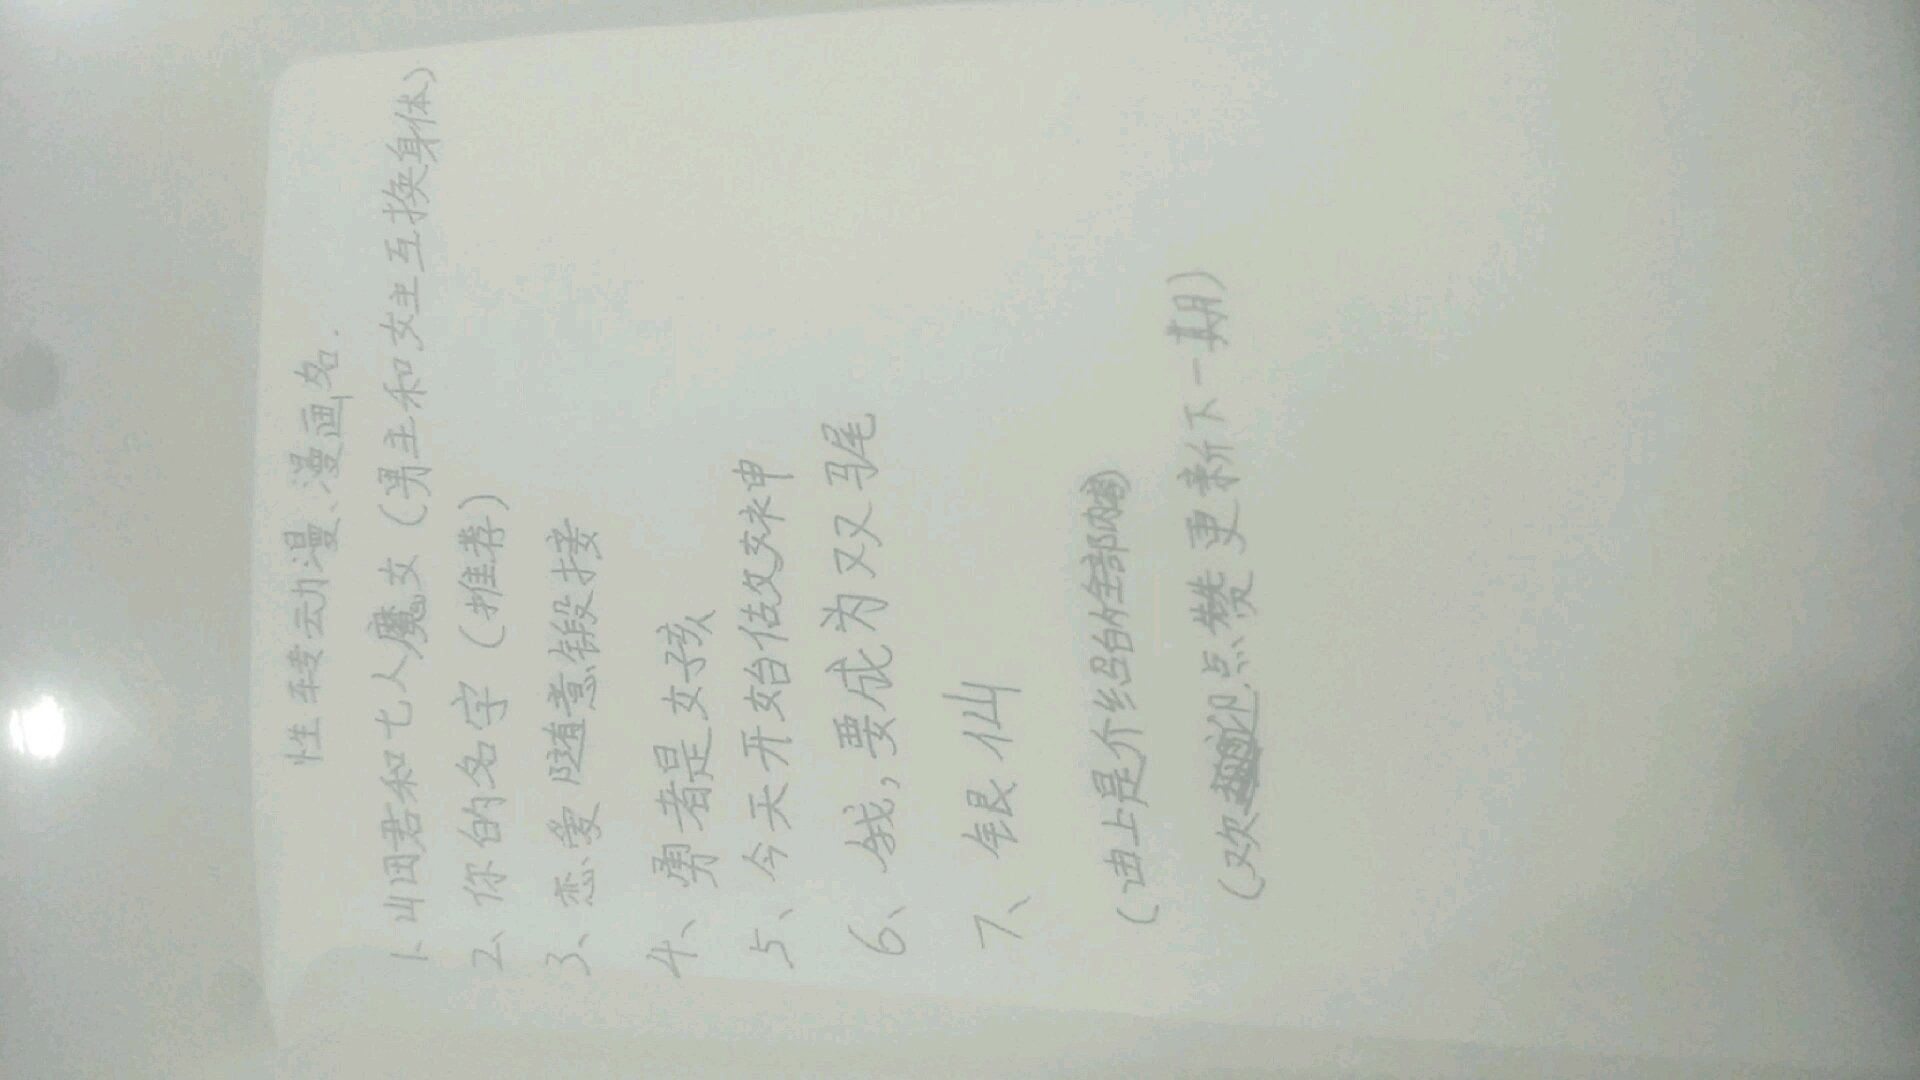 性转动漫、漫画名.
1、山田君和七人魔女(男主和女主互换身体)
2、你的名字(推荐)
3、恋爱随意链接
4、勇者是女孩
5、今天开始做女神
6、俄,要成为双马尾
7、银仙
(由上是介绍的全部内容)
(欢迎点赞更新下一期)